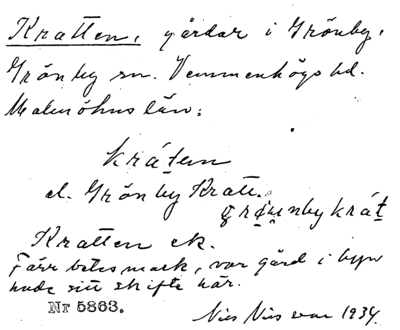 Kratten, gårdar i Grönby,
Grönby sn. Vemmenhögs hd.
Malmöhus län:
kráten
el. Grönby Kratt.
grønby krát
Kratten ek.
Förr betesmark, var gård i byn
hade sitt skifte här.
Nr 5863.
Nils Nilsson 1934.